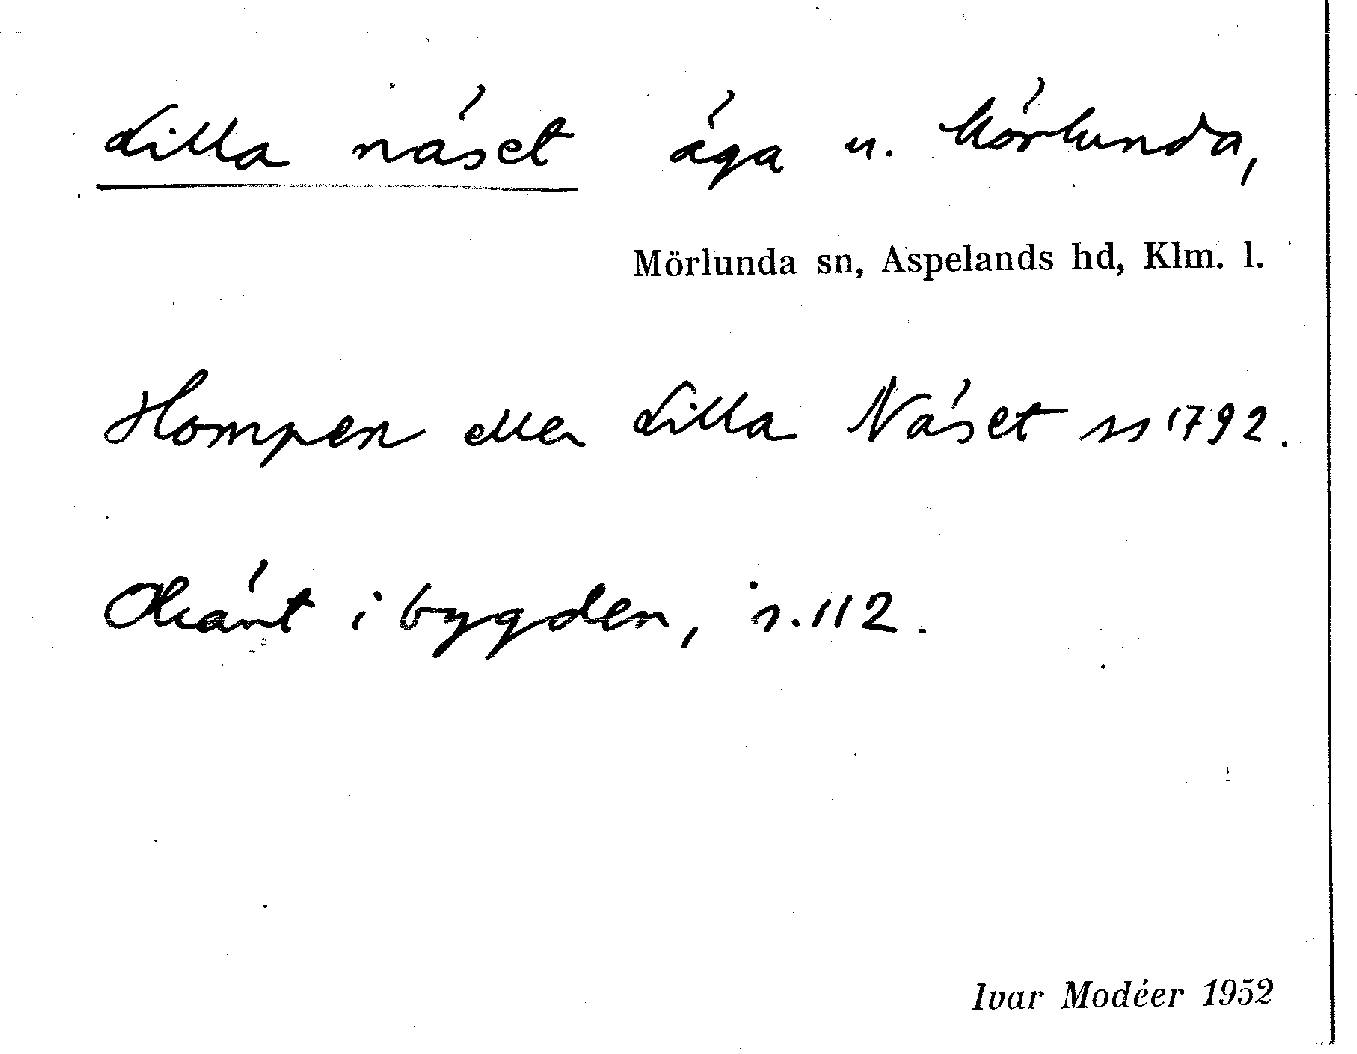 Lilla näset äga u. Mörlunda,
Mörlunda sn, Aspelands hd, Klm. l.
Hompen eller Lilla Näset ss 1792.
Okänt i bygden, s. 112.
Ivar Modéer 1952